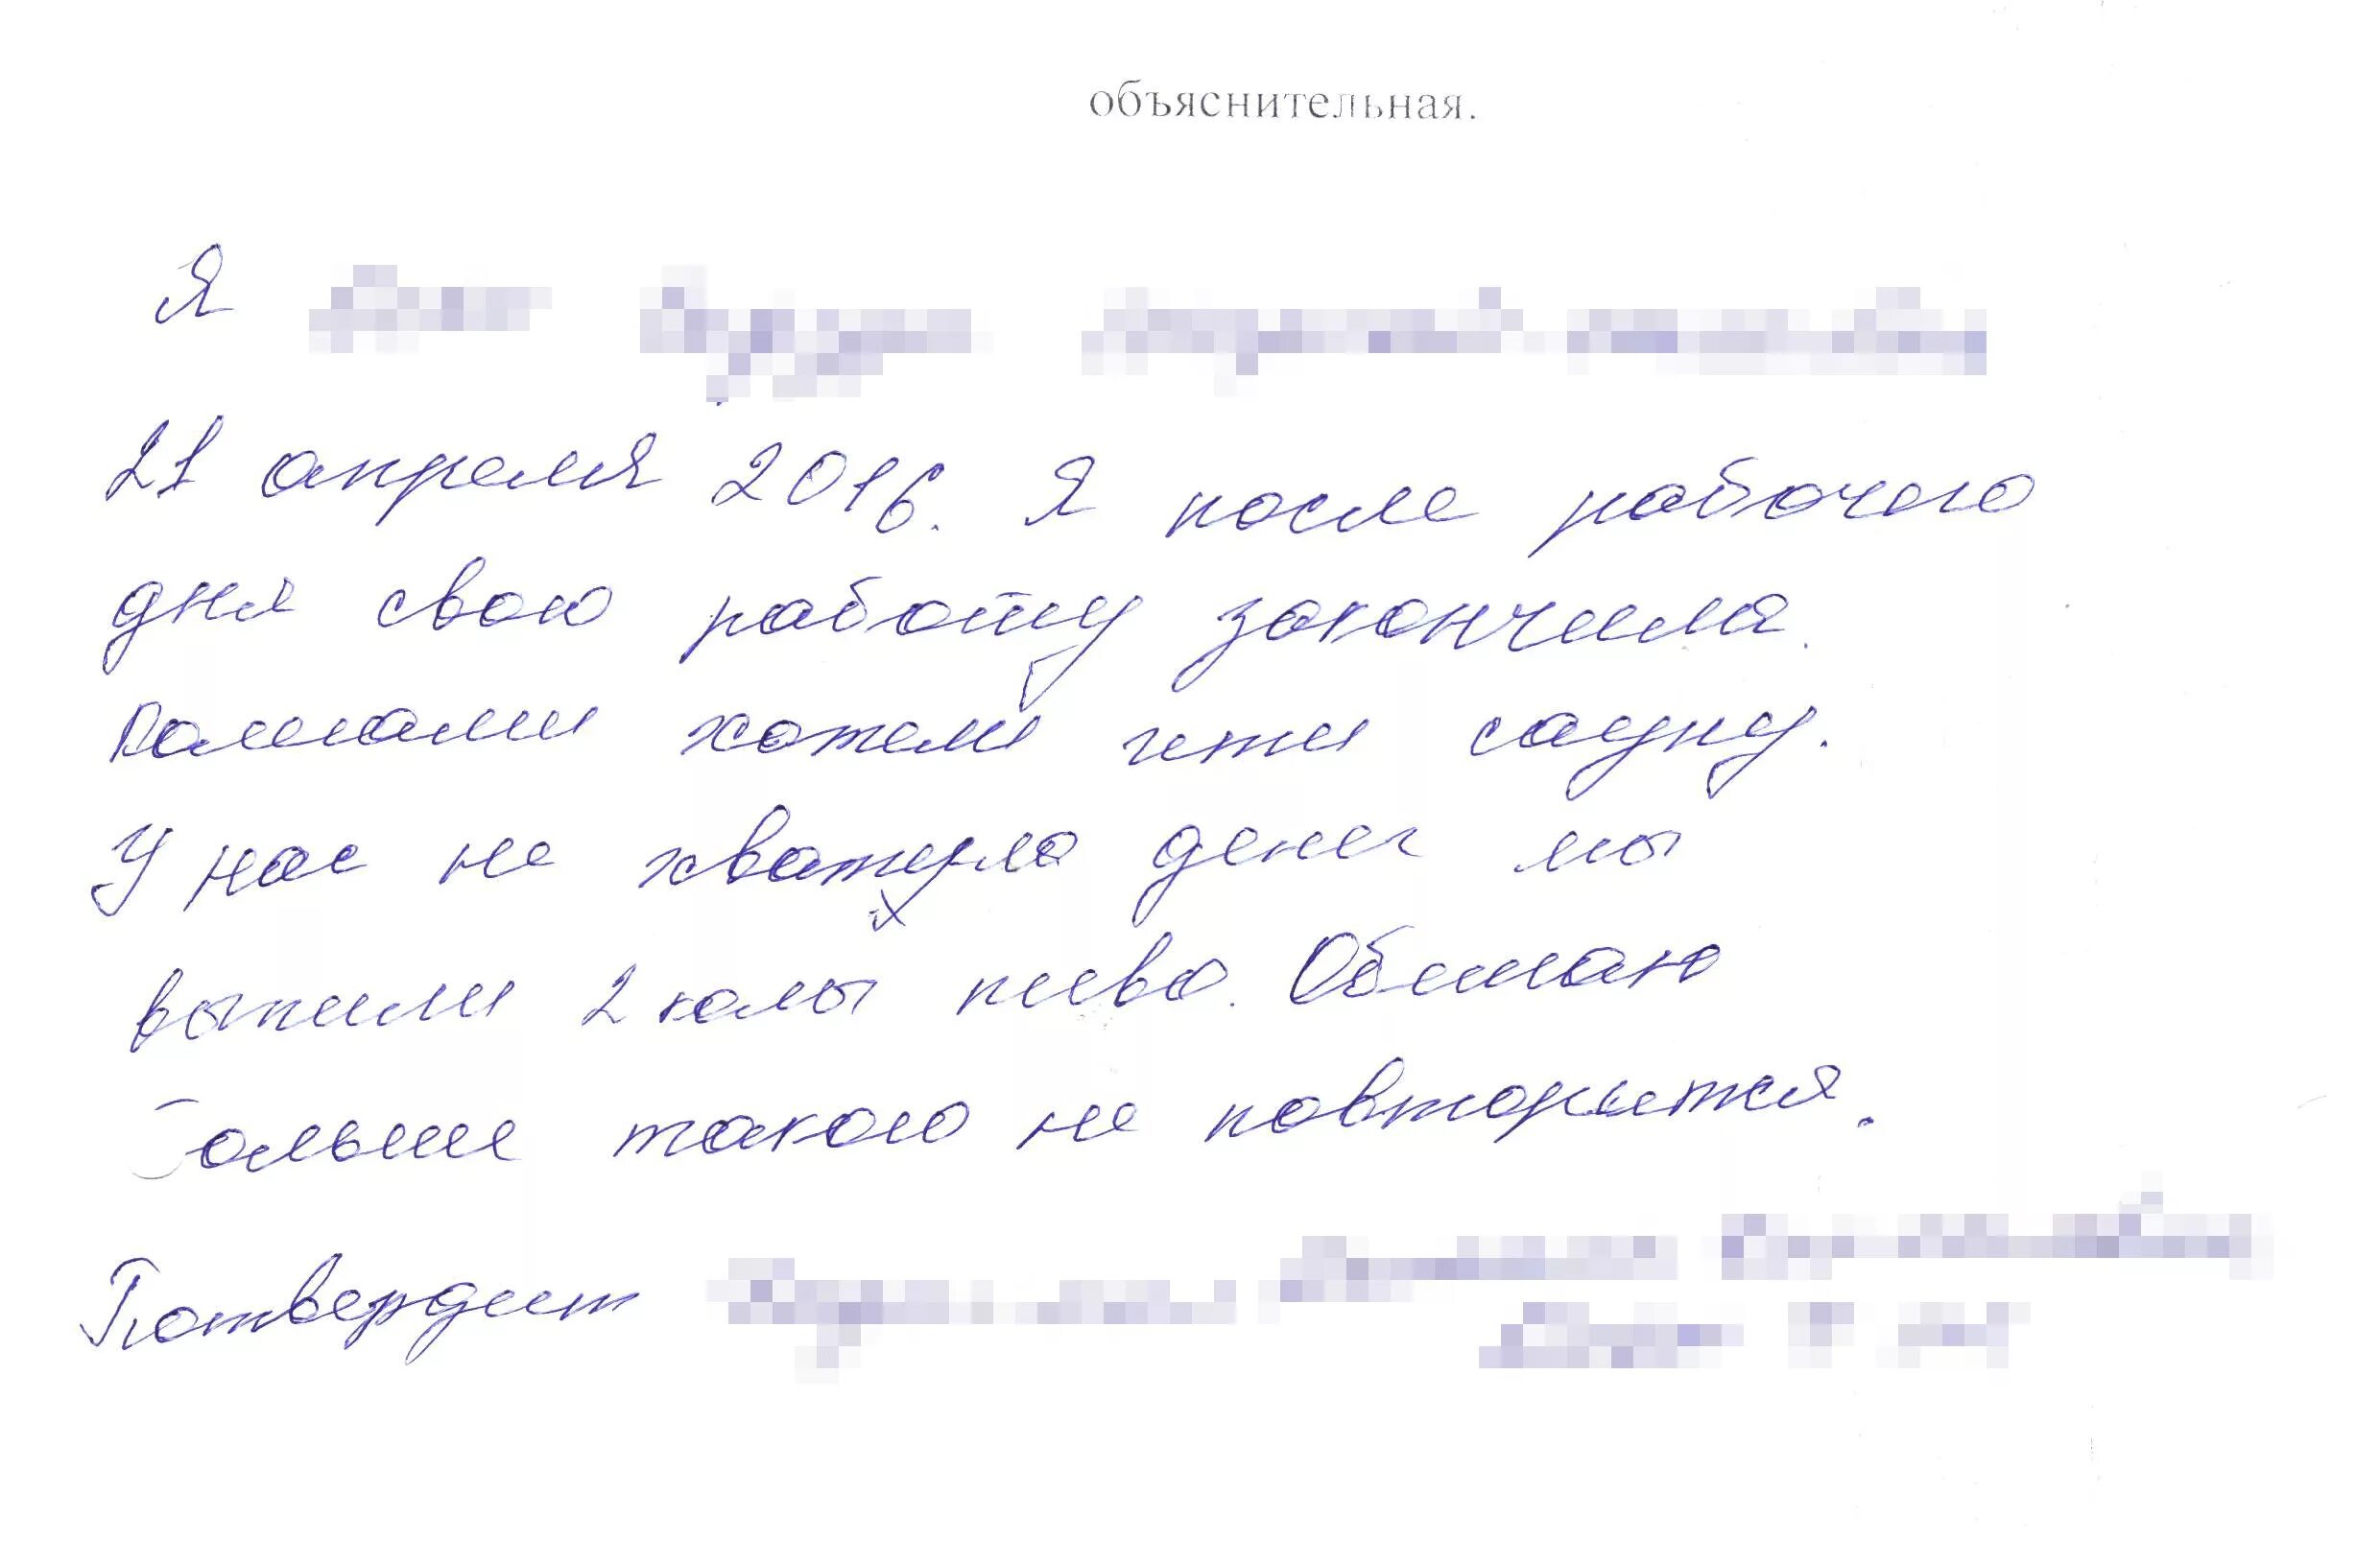 объяснительная.
Я
21 апреля 2016. Я после рабочего
дня свою работу закончила.
хотели ити сауну.
У нас не хватило денег мы
выпили 2 калы пиво. Обешаю
больше такого не повториться.
Потвердит